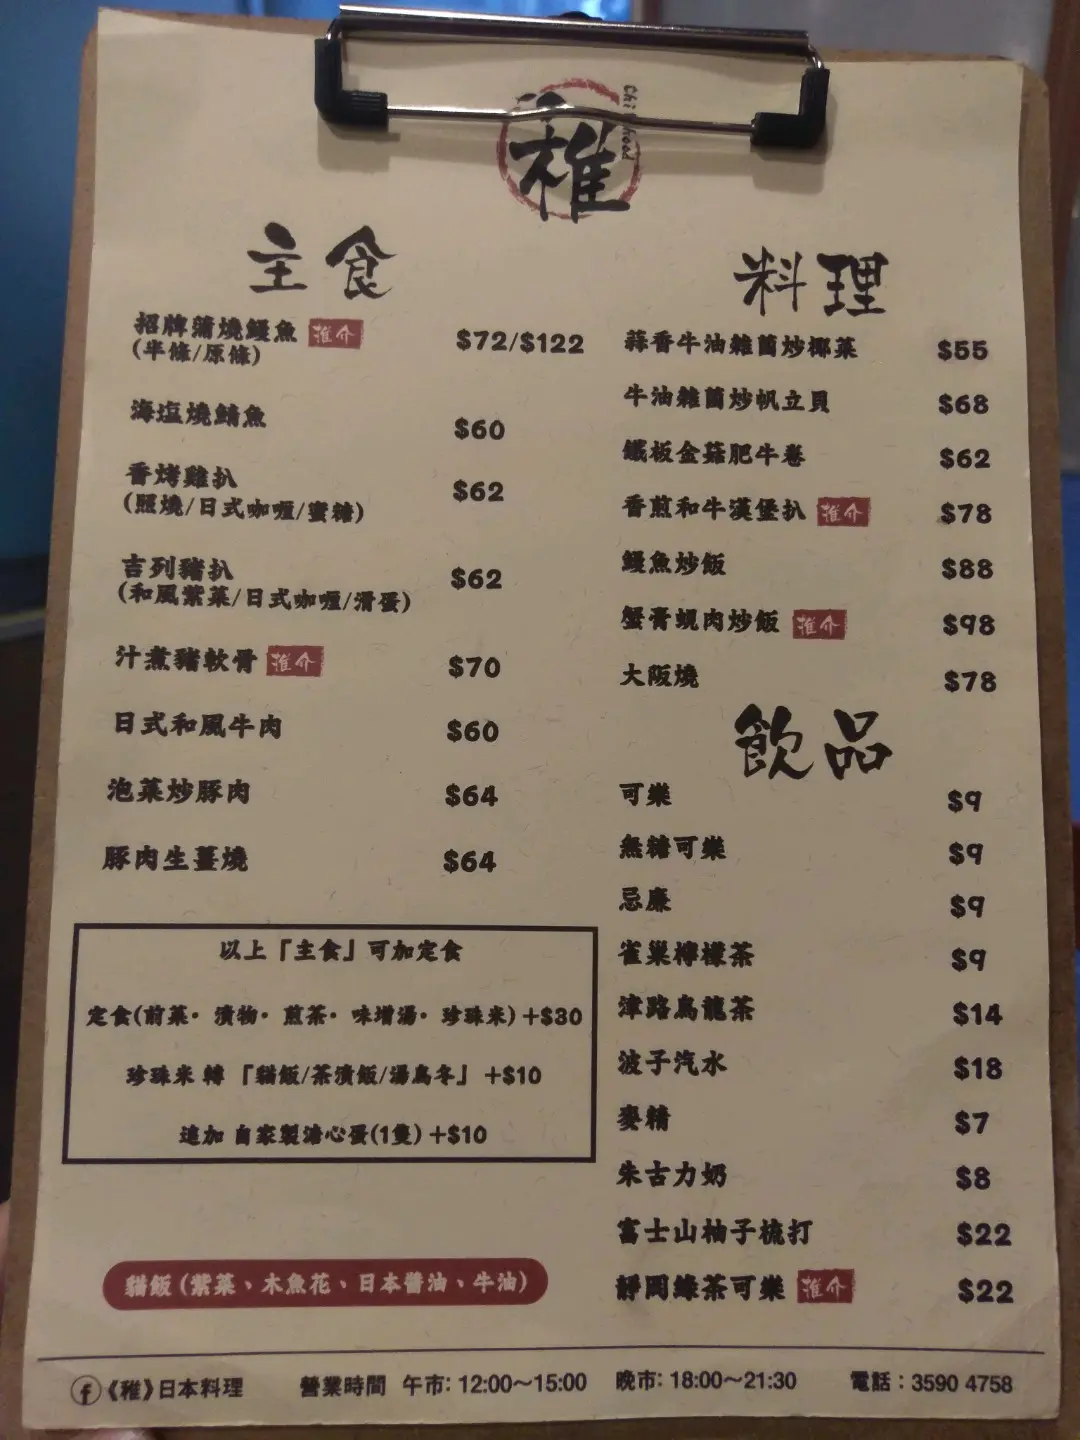 稚
主食
招牌蒲燒鰻魚 推介 $72/$122
(半條/原條)
海塩燒鯖魚 $60
香烤雞扒 $62
(照燒/日式咖喱/蜜糖)
吉列豬扒 $62
(和風紫菜/日式咖喱/滑蛋)
汁煮豬軟骨 推介 $70
日式和風牛肉 $60
泡菜炒豚肉 $64
豚肉生薑燒 $64
以上「主食」可加定食
定食(前菜・漬物・煎茶・味增湯・珍珠米)+$30
珍珠米 轉 「貓飯/茶漬飯/湯烏冬」 +$10
追加 自家製溏心蛋(1隻)+$10
貓飯 (紫菜、木魚花、日本醬油、牛油)
料理
蒜香牛油雜菌炒椰菜 $55
牛油雜菌炒帆立貝 $68
鐵板金菇肥牛卷 $62
香煎和牛漢堡扒 推介 $78
鰻魚炒飯 $88
蟹膏蜆肉炒飯 推介 $98
大阪燒 $78
飲品
可樂 $9
無糖可樂 $9
忌廉 $9
雀巢檸檬茶 $9
津路烏龍茶 $14
波子汽水 $18
麥精 $7
朱古力奶 $8
富士山柚子梳打 $22
靜岡綠茶可樂 推介 $22
《稚》日本料理 營業時間 午市: 12:00～15:00 晚市: 18:00～21:30 電話：3590 4758